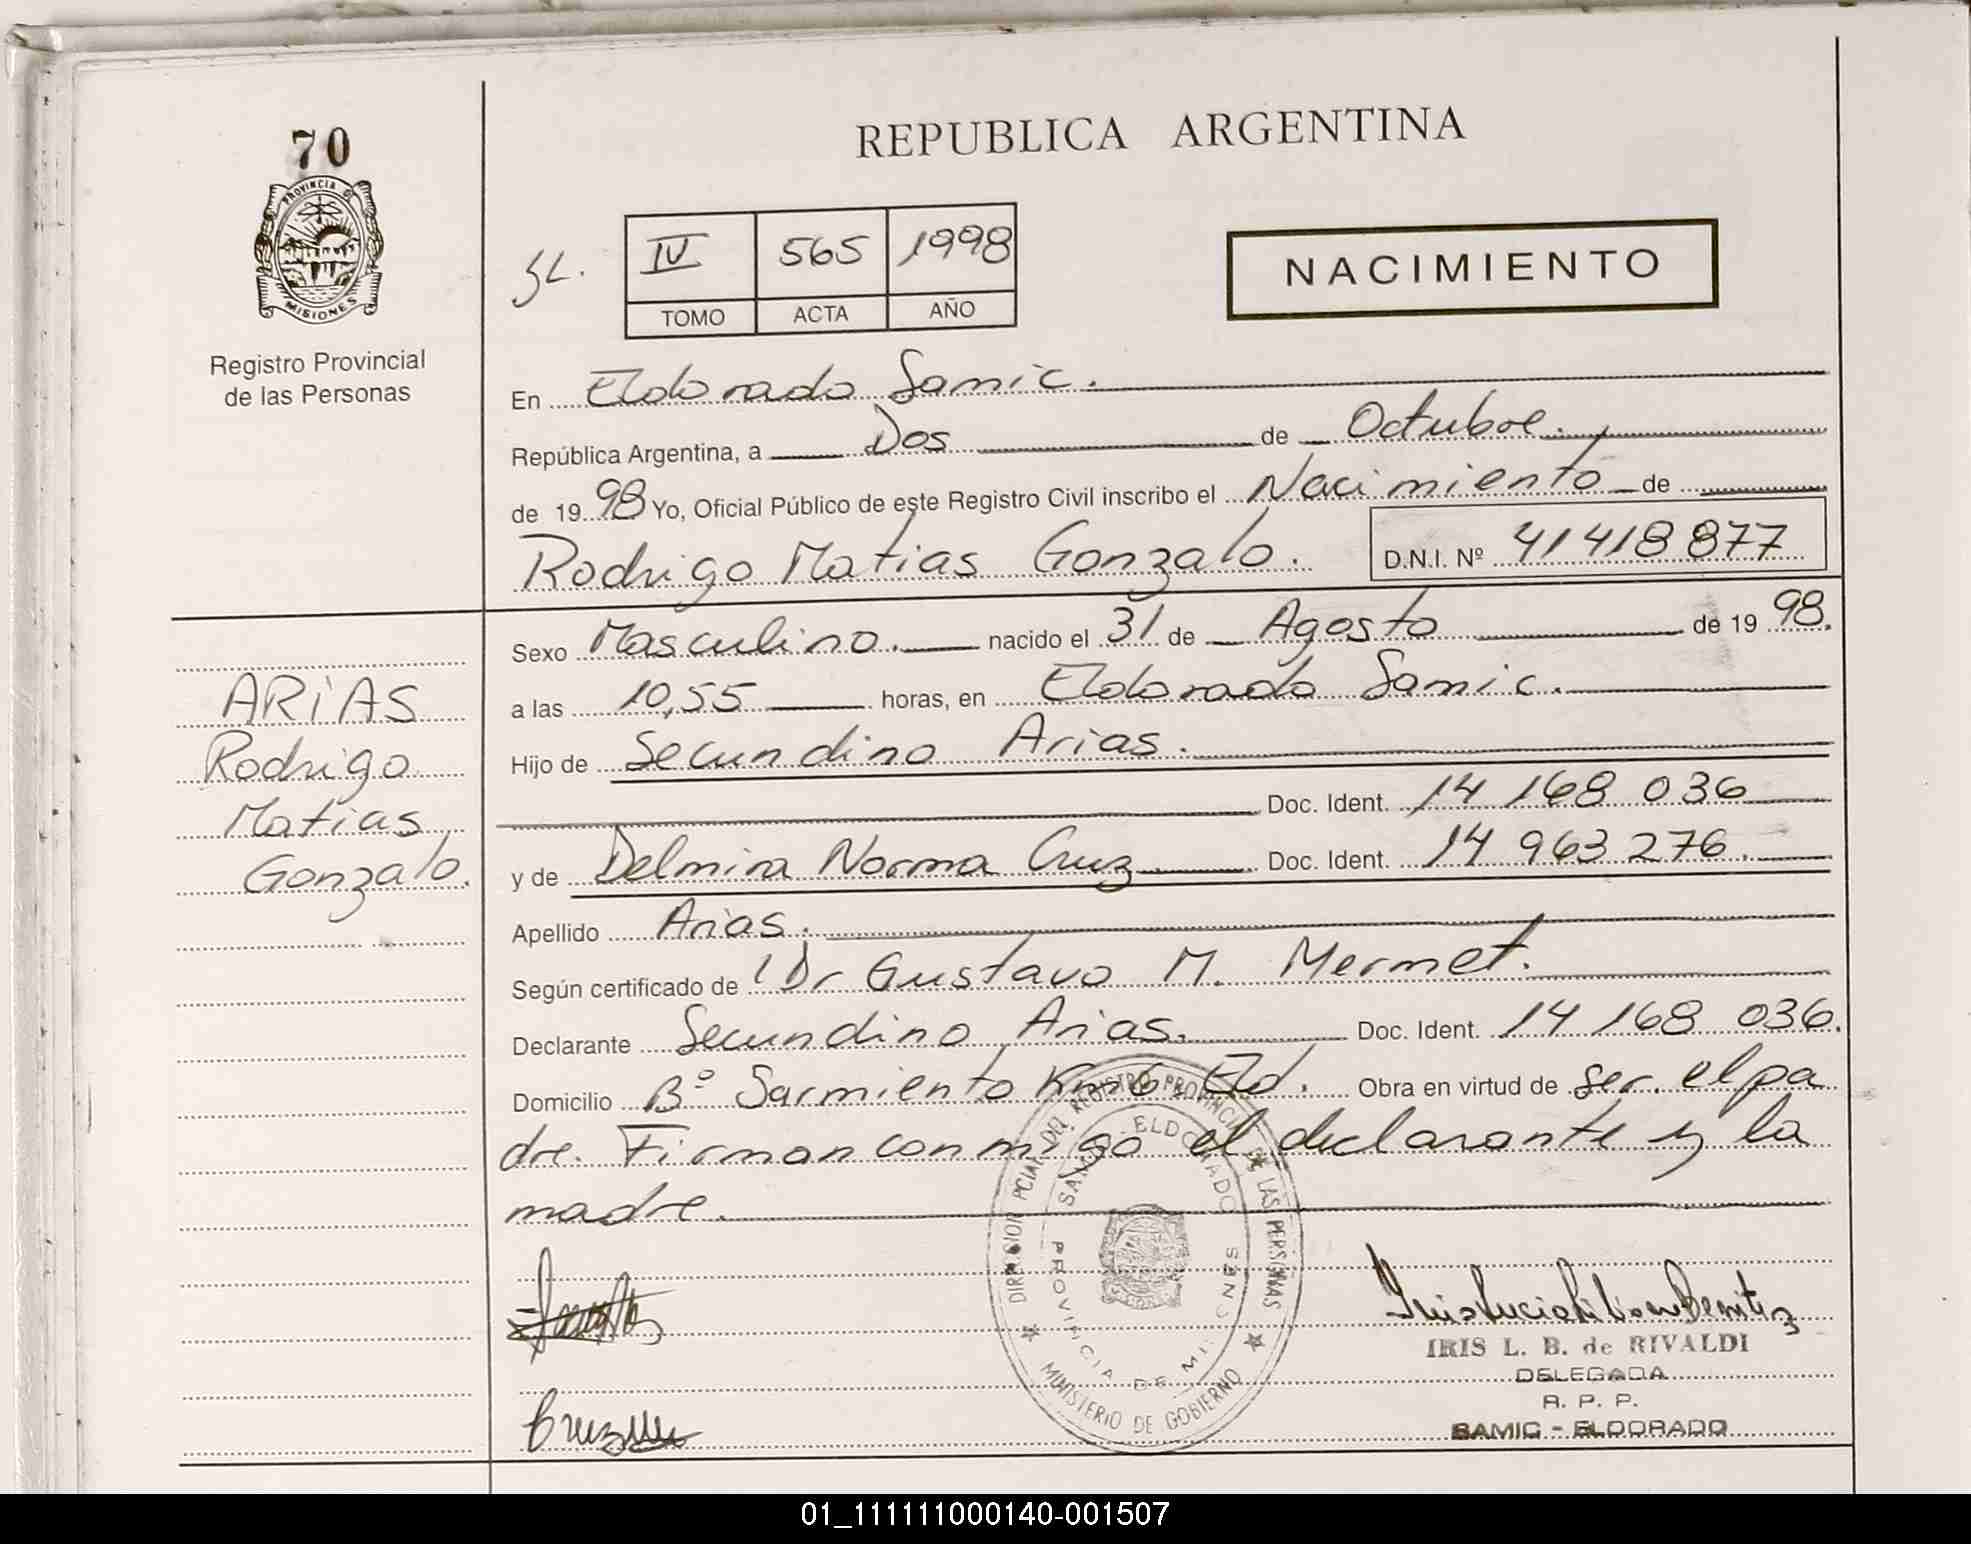 70
PROVINCIA DE
MISIONES
Registro Provincial
de las Personas
REPUBLICA ARGENTINA
SL.
IV 565 1998
TOMO ACTA AÑO
NACIMIENTO
En Eldorado Samic.
República Argentina, a Dos de Octubre.
de 1998 Yo, Oficial Público de este Registro Civil inscribo el Nacimiento de
Rodrigo Matias Gonzalo. D.N.I. Nº 41418877
Sexo Masculino. nacido el 31 de Agosto de 1998.
a las 10,55 horas, en Eldorado Samic.
Hijo de Secundino Arias.
Doc. Ident. 14 168 036
y de Delmira Norma Cruz Doc. Ident. 14 963 276.
Apellido Arias.
Según certificado de Dr Gustavo M. Mermet.
Declarante Secundino Arias. Doc. Ident. 14 168 036.
Domicilio Bº Sarmiento Km 6 Eld. Obra en virtud de ser el pa
dre. Firman conmigo el declarante y la
madre.
ARIAS
Rodrigo
Matias
Gonzalo.
DIRECCION PCIAL DEL REGISTRO PROVINCIAL DE LAS PERSONAS
MINISTERIO DE GOBIERNO
SAMIC ELDORADO
PROVINCIA DE MISIONES
Cruz
IRIS L. B. de RIVALDI
DELEGADA
R. P. P.
SAMIC - ELDORADO
01_111111000140-001507